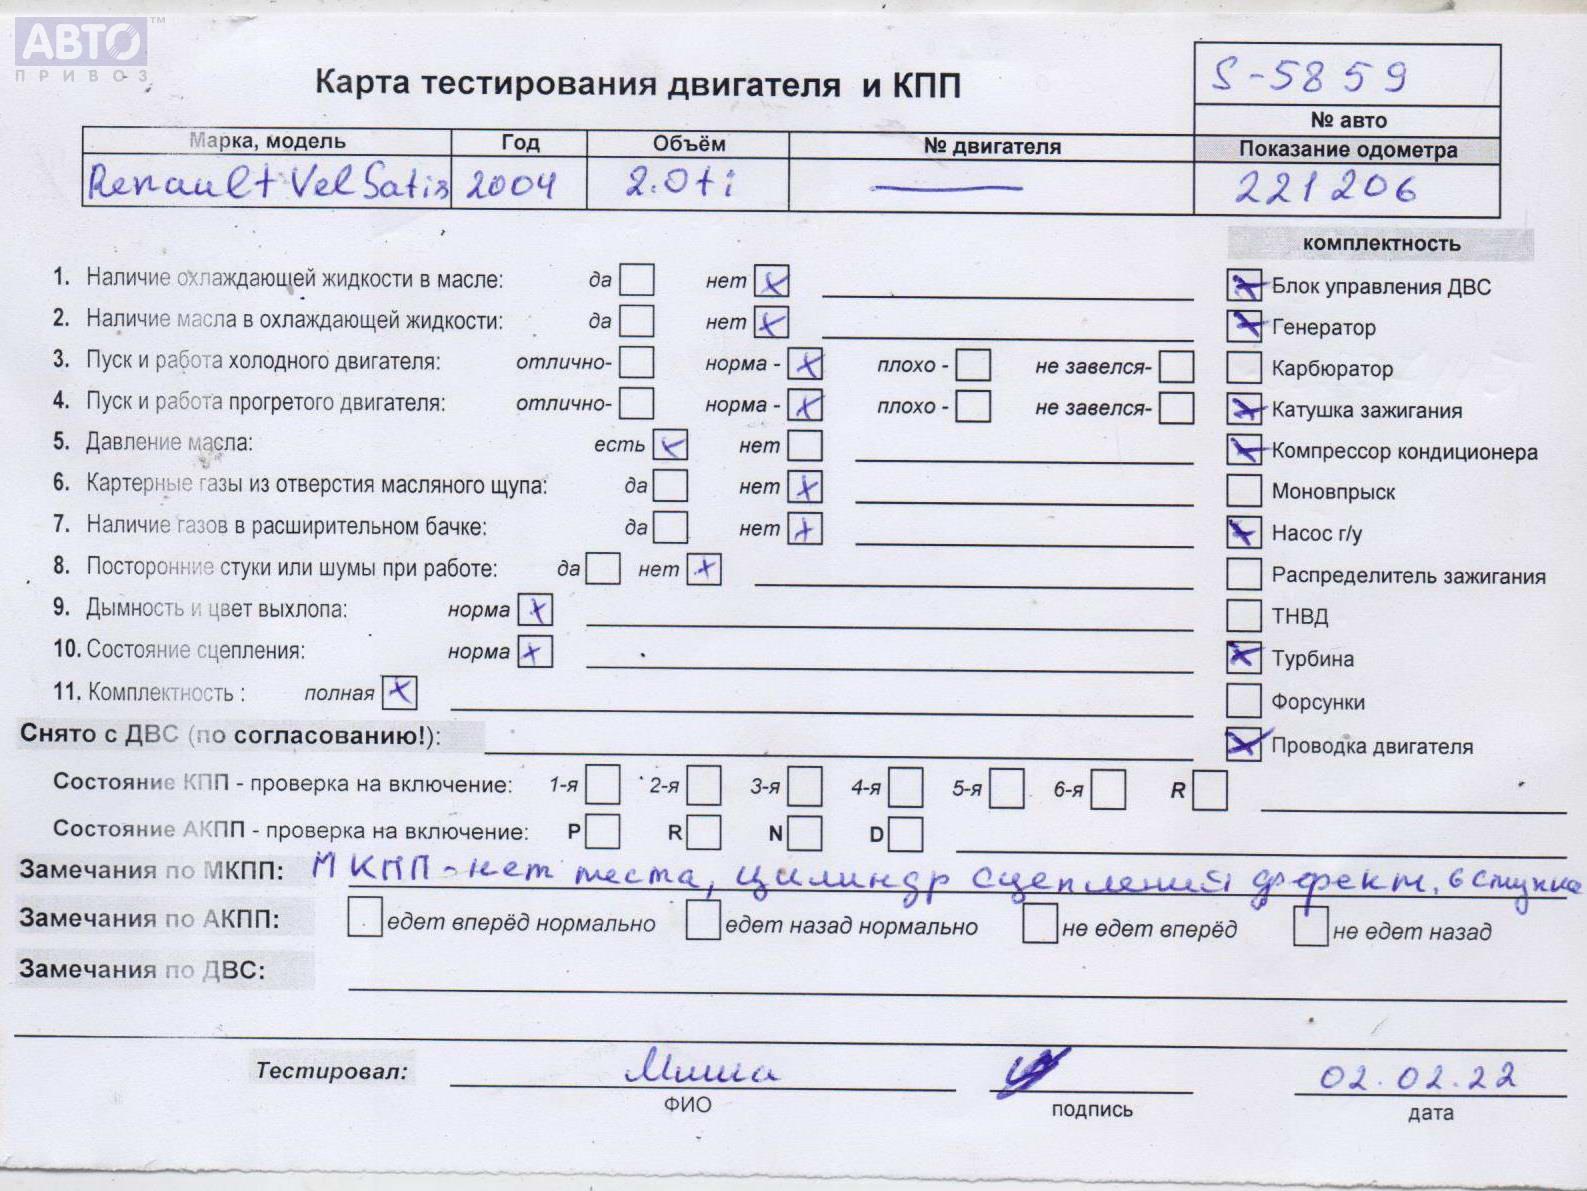 АВТО ™
ПРИВОЗ
Карта тестирования двигателя и КПП
S-5859
№ авто
Марка, модель Год Объём № двигателя Показание одометра
Renault Vel Satis 2004 2.0ti — 221206
комплектность
1. Наличие охлаждающей жидкости в масле: да нет x
2. Наличие масла в охлаждающей жидкости: да нет x
3. Пуск и работа холодного двигателя: отлично- норма - x плохо - не завелся-
4. Пуск и работа прогретого двигателя: отлично- норма - x плохо - не завелся-
5. Давление масла: есть x нет
6. Картерные газы из отверстия масляного щупа: да нет x
7. Наличие газов в расширительном бачке: да нет x
8. Посторонние стуки или шумы при работе: да нет x
9. Дымность и цвет выхлопа: норма x
10. Состояние сцепления: норма x
11. Комплектность : полная x
x Блок управления ДВС
x Генератор
Карбюратор
x Катушка зажигания
x Компрессор кондиционера
Моновпрыск
x Насос г/у
Распределитель зажигания
ТНВД
x Турбина
Форсунки
x Проводка двигателя
Снято с ДВС (по согласованию!):
Состояние КПП - проверка на включение: 1-я 2-я 3-я 4-я 5-я 6-я R
Состояние АКПП - проверка на включение: P R N D
Замечания по МКПП: МКПП - нет теста, цилиндр сцепления дефект, 6 ступка
Замечания по АКПП: едет вперёд нормально едет назад нормально не едет вперёд не едет назад
Замечания по ДВС:
Тестировал: Миша 02.02.22
ФИО подпись дата